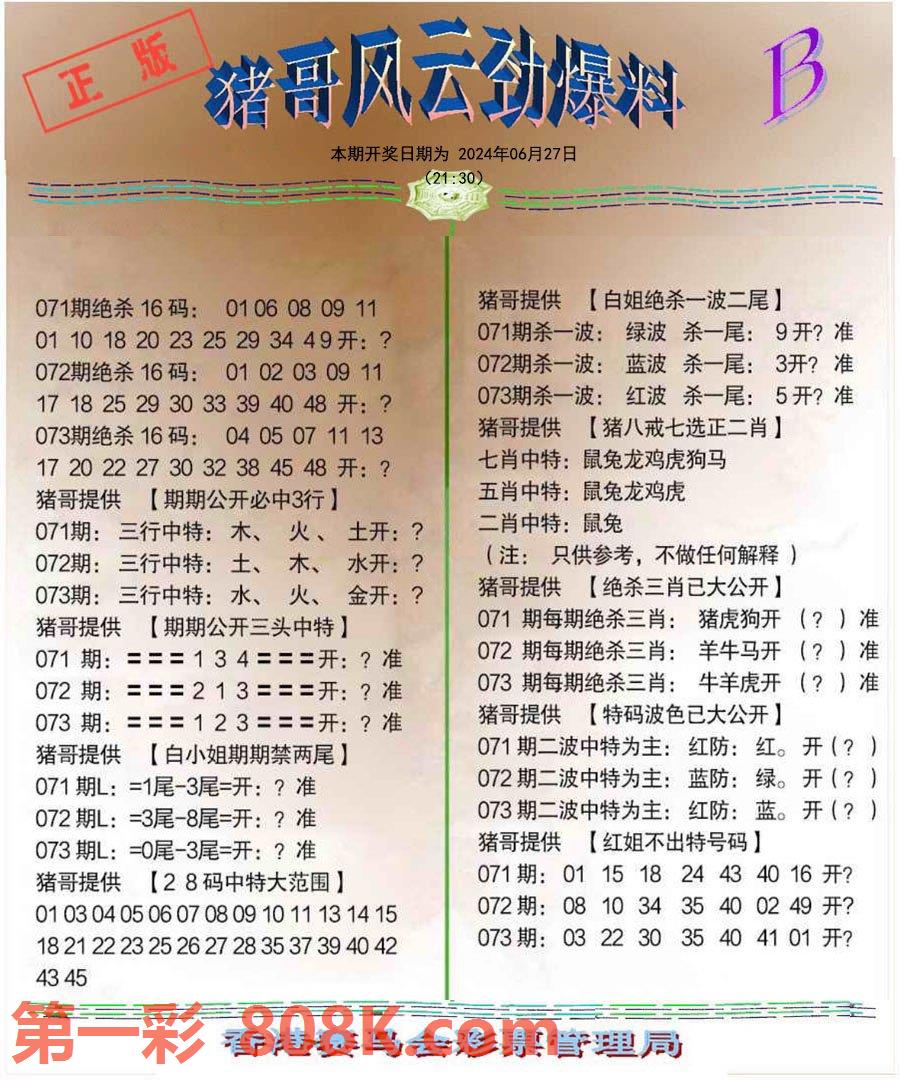 正版
猪哥风云劲爆料
B
本期开奖日期为 2024年06月27日
（21:30）
071期绝杀16码： 01 06 08 09 11
01 10 18 20 23 25 29 34 49 开：?
072期绝杀16码： 01 02 03 09 11
17 18 25 29 30 33 39 40 48 开：?
073期绝杀16码： 04 05 07 11 13
17 20 22 27 30 32 38 45 48 开：?
猪哥提供 【期期公开必中3行】
071期： 三行中特： 木、 火、 土开：?
072期： 三行中特： 土、 木、 水开：?
073期： 三行中特： 水、 火、 金开：?
猪哥提供 【期期公开三头中特】
071 期：〓〓〓134〓〓〓开：? 准
072 期：〓〓〓213〓〓〓开：? 准
073 期：〓〓〓123〓〓〓开：? 准
猪哥提供 【白小姐期期禁两尾】
071期L：=1尾-3尾=开：? 准
072期L：=3尾-8尾=开：? 准
073期L：=0尾-3尾=开：? 准
猪哥提供 【28码中特大范围】
01 03 04 05 06 07 08 09 10 11 13 14 15
18 21 22 23 25 26 27 28 35 37 39 40 42
43 45
猪哥提供 【白姐绝杀一波二尾】
071期杀一波： 绿波 杀一尾： 9开? 准
072期杀一波： 蓝波 杀一尾： 3开? 准
073期杀一波： 红波 杀一尾： 5开? 准
猪哥提供 【猪八戒七选正二肖】
七肖中特：鼠兔龙鸡虎狗马
五肖中特：鼠兔龙鸡虎
二肖中特：鼠兔
（注： 只供参考，不做任何解释）
猪哥提供 【绝杀三肖已大公开】
071 期每期绝杀三肖： 猪虎狗开 （?）准
072 期每期绝杀三肖： 羊牛马开 （?）准
073 期每期绝杀三肖： 牛羊虎开 （?）准
猪哥提供 【特码波色已大公开】
071期二波中特为主：红防：红。开（?）
072期二波中特为主：蓝防：绿。开（?）
073期二波中特为主：红防：蓝。开（?）
猪哥提供 【红姐不出特号码】
071期： 01 15 18 24 43 40 16 开?
072期： 08 10 34 35 40 02 49 开?
073期： 03 22 30 35 40 41 01 开?
第一彩 808K.com
香港赛马会彩票管理局